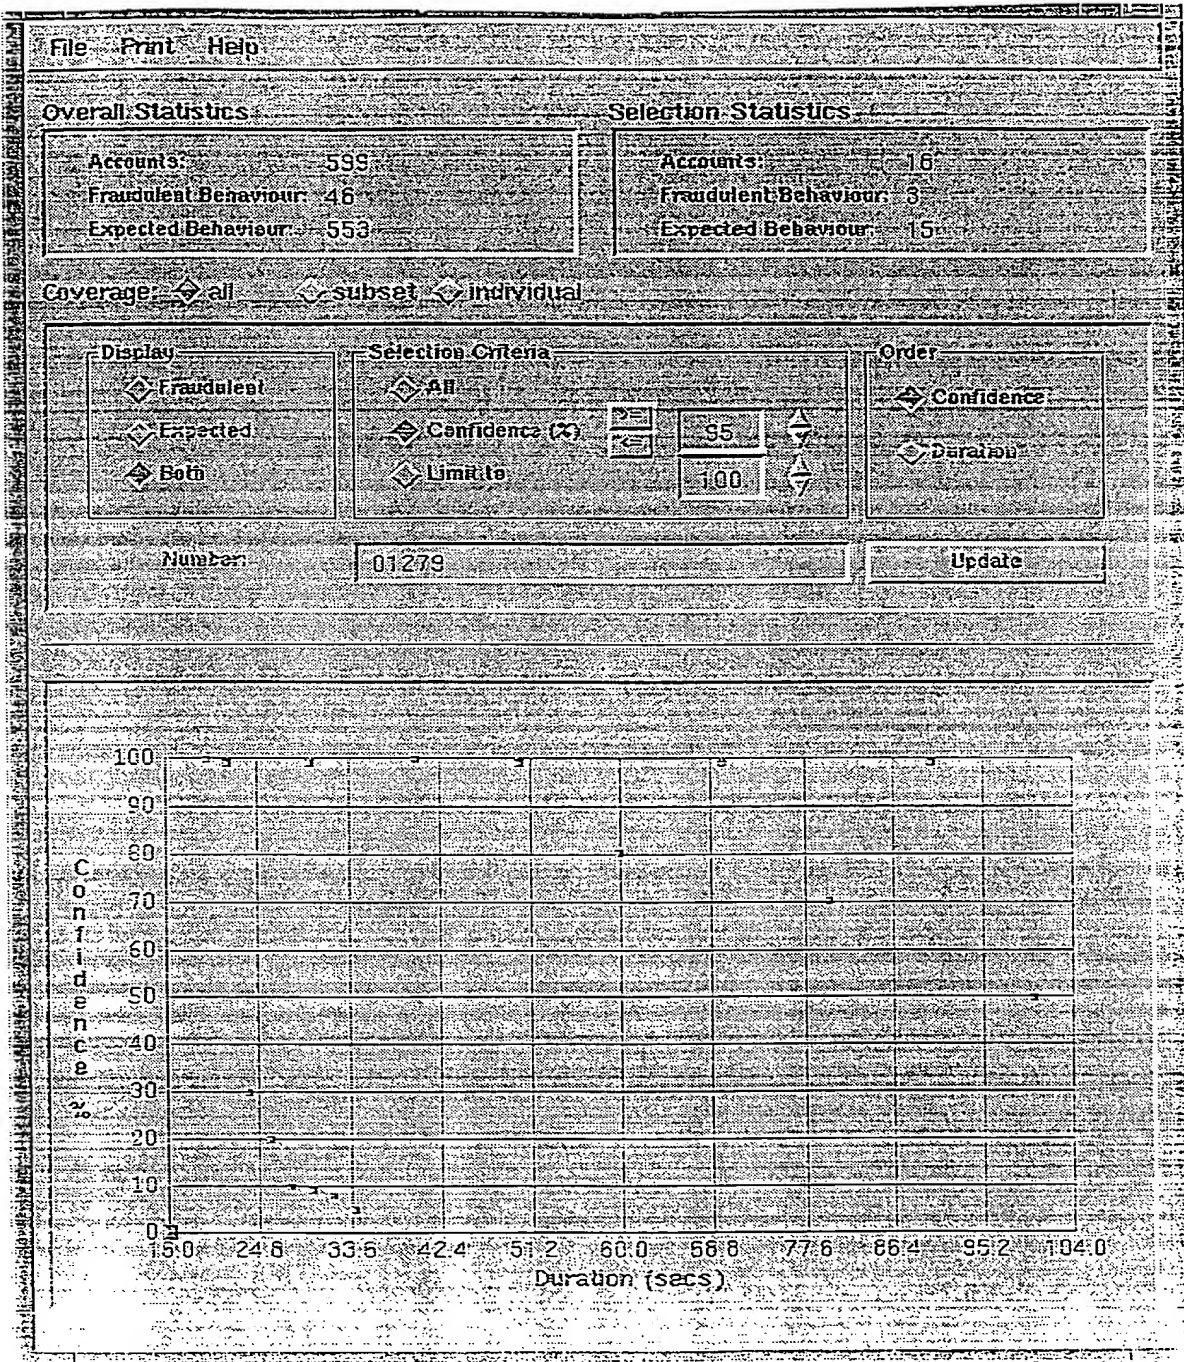 File Print Help
Overall Statistics
Selection Statistics
Accounts: 599
Fraudulent Behaviour: 46
Expected Behaviour: 553
Accounts: 16
Fraudulent Behaviour: 3
Expected Behaviour: 15
Coverage: all subset individual
Display
Fraudulent
Expected
Both
Selection Criteria
All
Confidence (%) >= 95
<=
Limit to 100
Order
Confidence
Duration
Number: 01279 Update
100
90
80
70
60
50
40
30
20
10
0
Confidence %
24.8 33.6 42.4 51.2 60.0 68.8 77.6 86.4 95.2 104.0
Duration (secs)